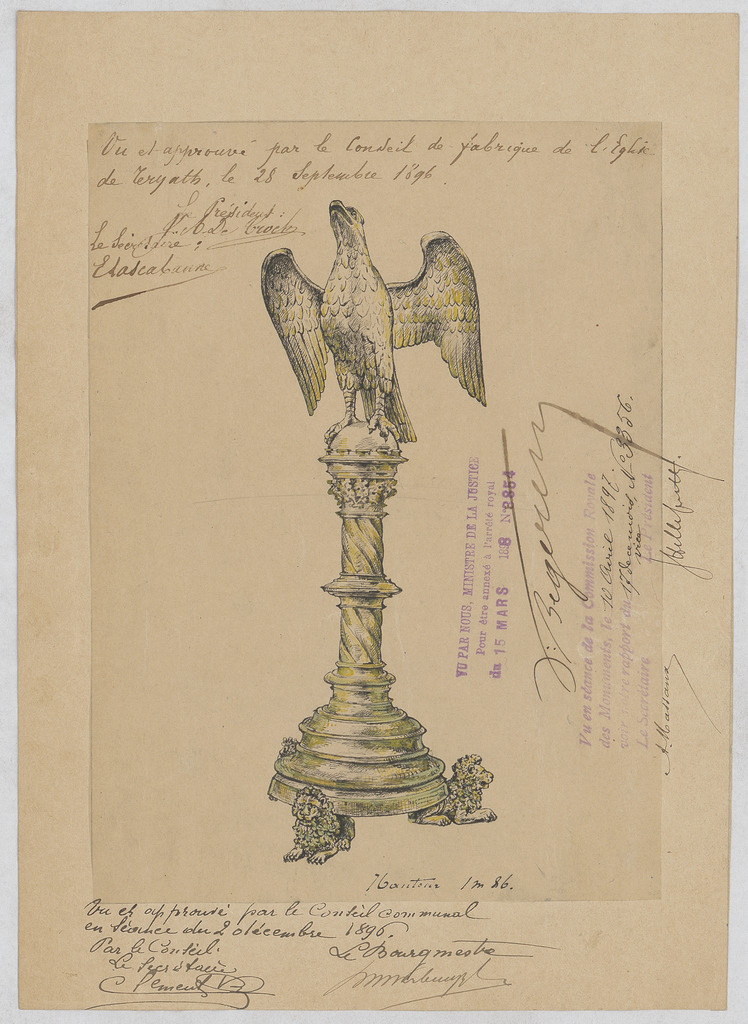 Vu et approuvé par le Conseil de fabrique de l'Eglise
de Eryath, le 28 Septembre 1896.
Le Président:
Le Secrétaire:
VU PAR NOUS, MINISTRE DE LA JUSTICE
Pour être annexé à l'arrêté royal
du 15 MARS 1898 N° 8854
Vu en séance de la Commission Royale
des Monuments, le 10 Avril 1897.
voir notre rapport du N° 3356.
Le Secrétaire Le Président
vice
A. Massaux
Hauteur 1m 86.
Vu et approuvé par le Conseil communal
en séance du 2 décembre 1896.
Par le Conseil: Le Bourgmestre
Le Secrétaire